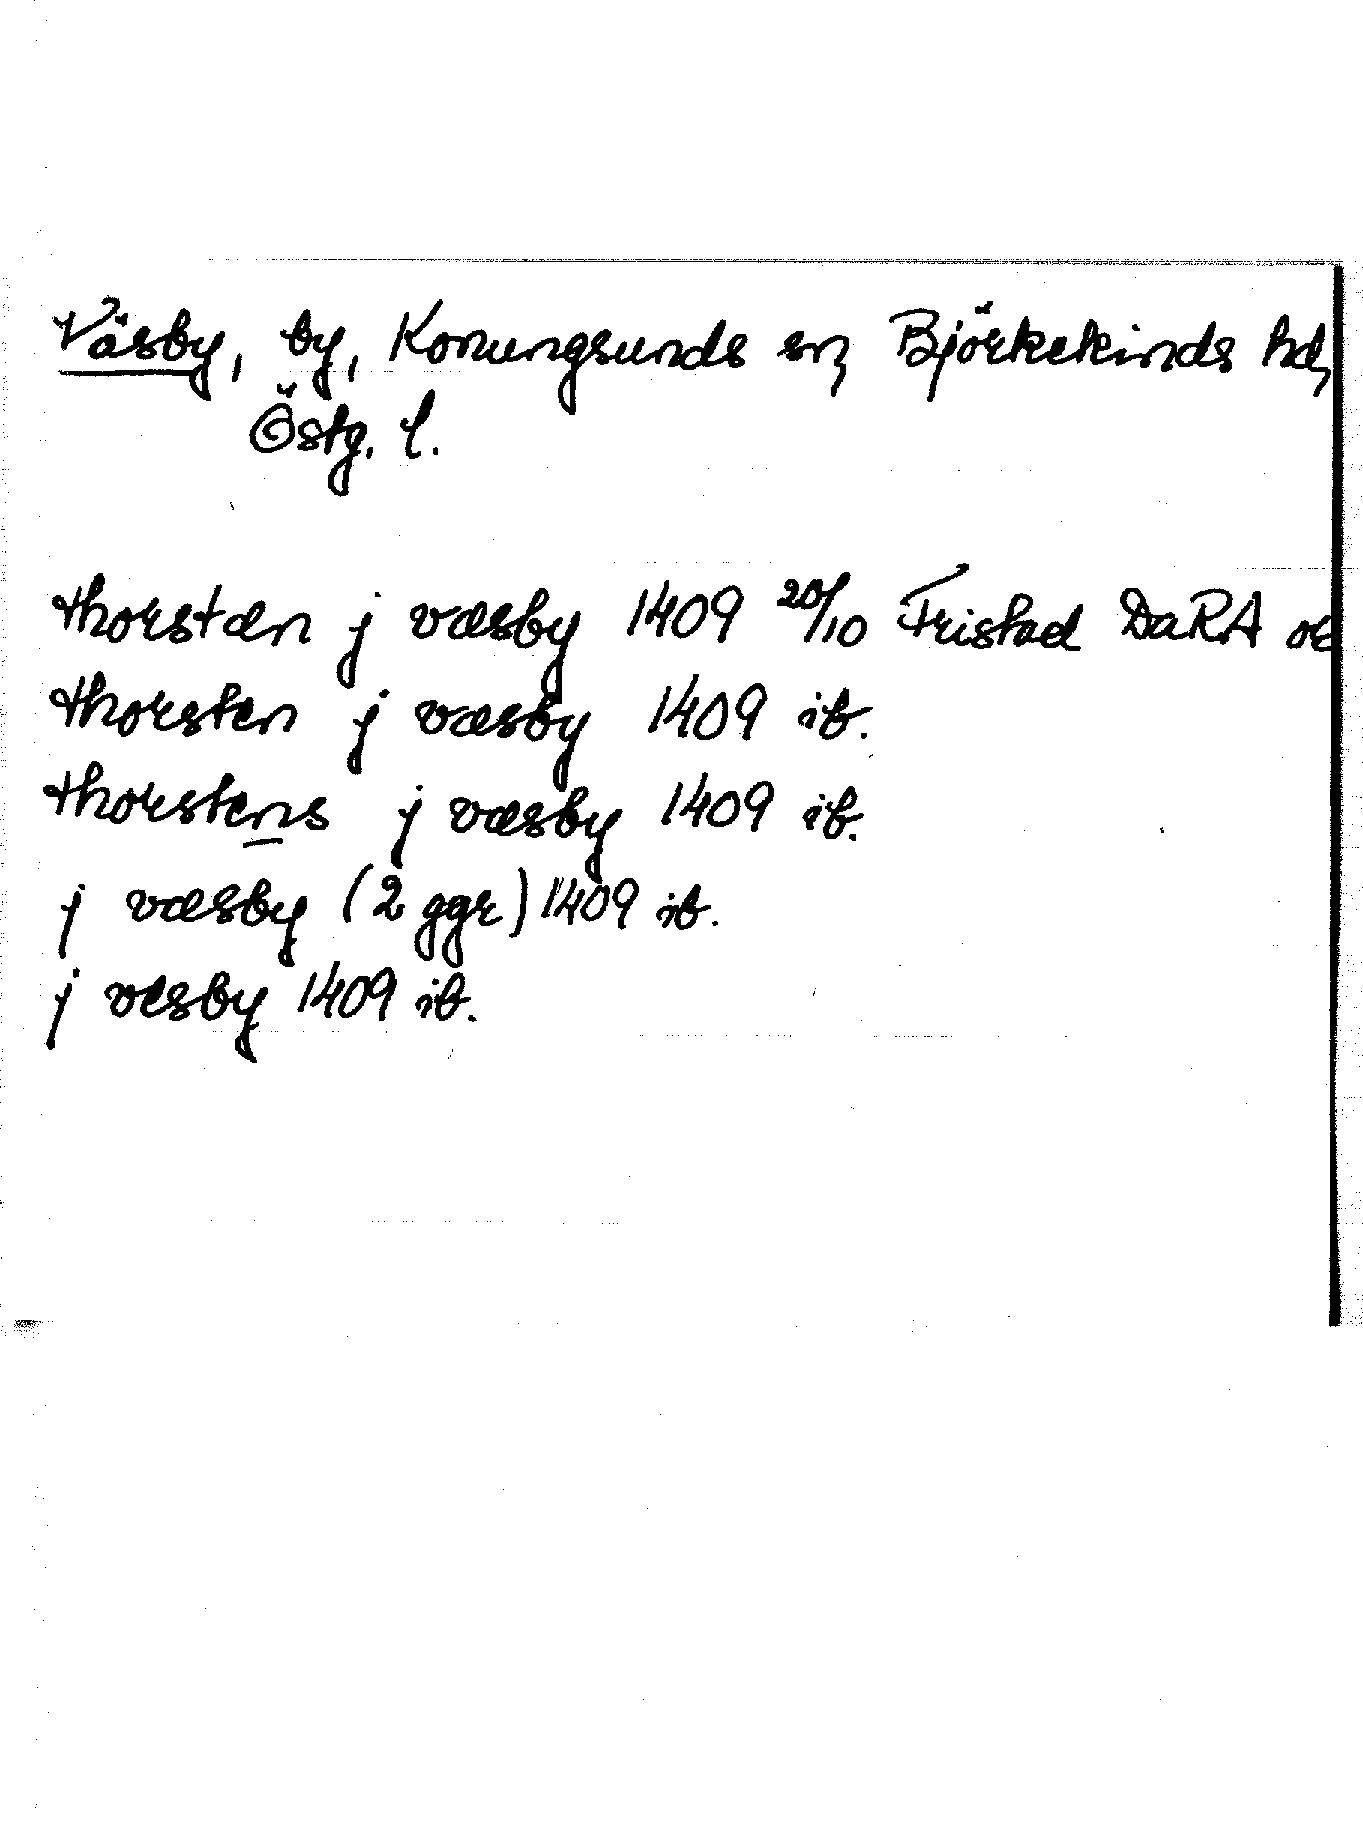 Väsby, by, Konungsunds sn, Björkekinds hd,
Östg. l.
thorstæn j væsby 1409 20/10 Fristad DaRA or
thorsten j væsby 1409 ib.
thorstens j væsby 1409 ib.
j væsby (2 ggr) 1409 ib.
j vesby 1409 ib.